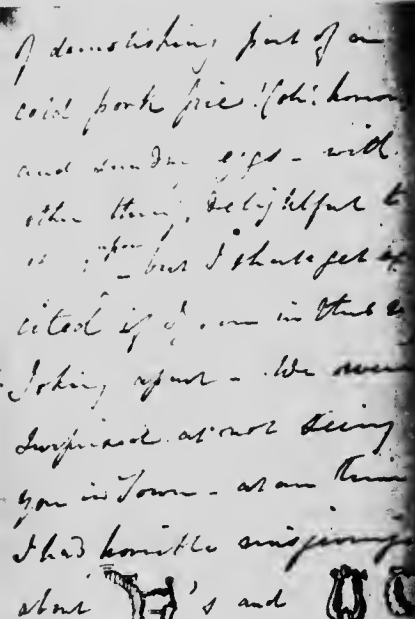 of demolishing part of a
cold pork pie! (oh! horror
and sundry eggs - with
other things delightful t
upon - but I shall get ex
cited if I in this
Joking apart - We were
surprised at not seeing
you in Town - at one time
I had horrible misgivings
about 's and